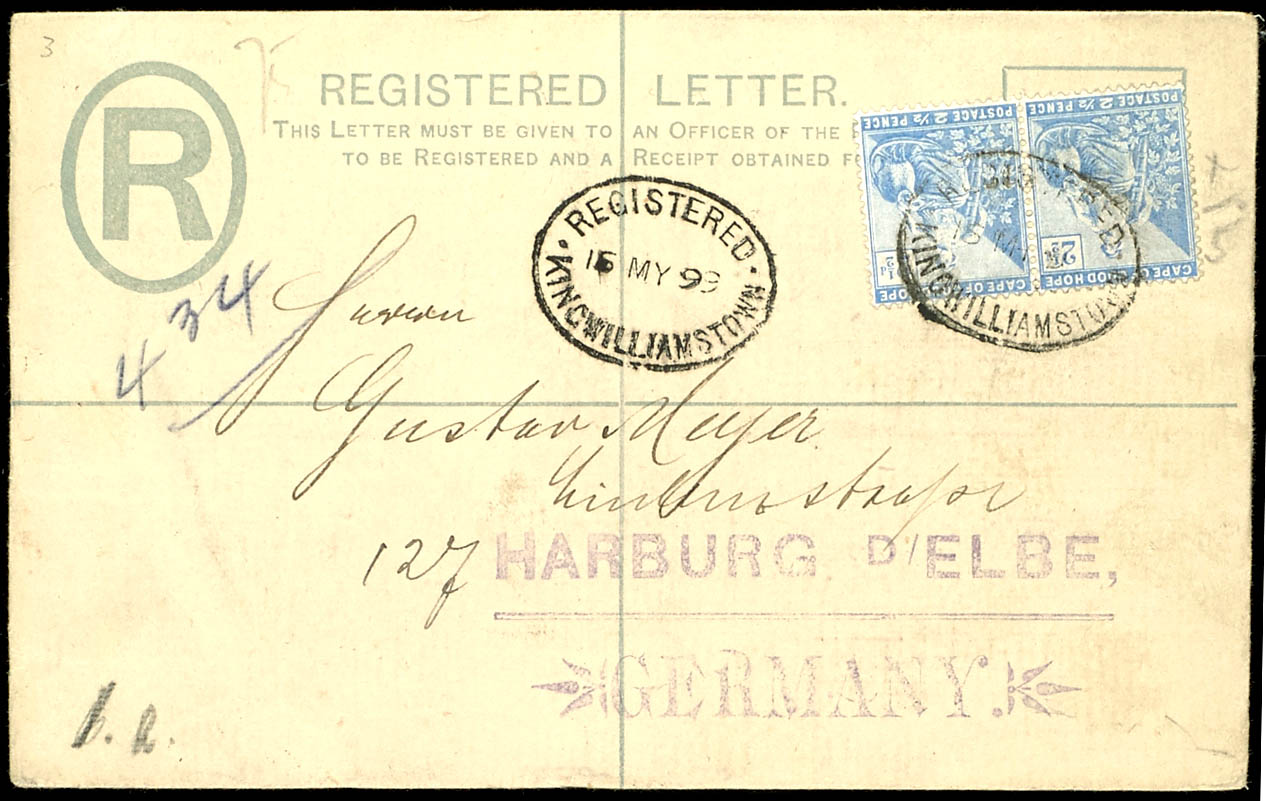 3
R
REGISTERED LETTER.
THIS LETTER MUST BE GIVEN TO AN OFFICER OF THE
TO BE REGISTERED AND A RECEIPT OBTAINED
POSTAGE 2½ PENCE
POSTAGE 2½ PENCE
CAPE OF HOPE
2½d
CAPE OF GOOD HOPE
REGISTERED
15 MY
KINGWILLIAMSTOWN
REGISTERED
15 MY 99
KINGWILLIAMSTOWN
434
Herrn
Gustav Meyer
Lindenstrasse
127 HARBURG D/ELBE,
GERMANY.